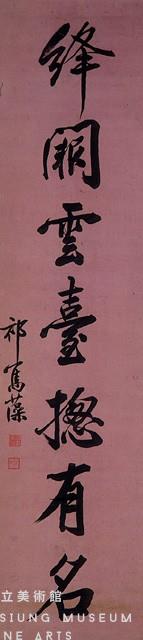 絳闕雲臺揔有名
祁寯藻
立美術館
SIUNG MUSEUM
NE ARTS